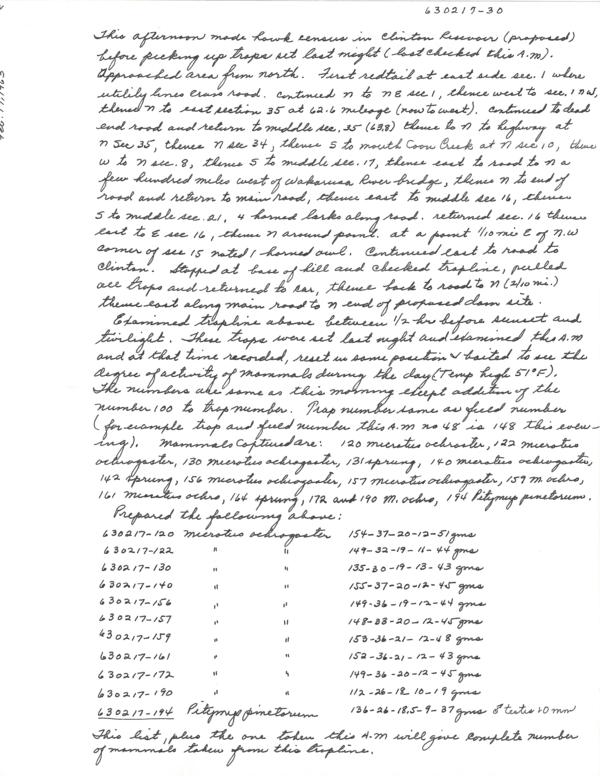 630217-30
Feb. 17, 1963
This afternoon made hawk census in Clinton Resevoir (proposed)
before picking up traps set last night (last checked this A.M).
Approached area from north. First redtail at east side sec. 1 where
utility lines cross road. Continued N to NE sec 1, thence west to sec. 1 NW,
thence N to east section 35 at 62.6 mileage (now to west). Continued to dead
end road and return to middle sec. 35 (63.8) thence to N to highway at
N Sec 35, thence N sec 34, thence S to mouth Coon Creek at N sec 10, thence
W to N sec. 8, thence S to middle sec. 17, thence east to road to N a
few hundred miles west of Wakarusa River bridge, thence N to end of
road and return to main road, thence east to middle sec 16, thence
S to middle sec. 21, 4 horned larks along road. returned sec. 16 thence
east to E sec 16, thence N around point. at a point 1/10 mi E of N.W
corner of sec 15 noted 1 horned owl. Continued east to road to
Clinton. Stopped at base of hill and checked trapline, pulled
all traps and returned to car, thence back to road to N (2/10 mi.)
thence east along main road to N end of proposed dam site.
Examined trapline above between 1/2 hr before sunset and
twilight. These traps were set last night and examined this A.M
and at that time recorded, reset in same position & baited to see the
degree of activity of mammals during the day (Temp high 51°F).
The numbers are same as this morning except addition of the
number 100 to trap number. Trap number same as field number
(for example trap and field number this A.M no 48 is 148 this even-
ing). Mammals captured are: 120 microtus ochroaster, 122 microtus
ochrogaster, 130 microtus ochrogaster, 131 sprung, 140 microtus ochrogaster,
142 sprung, 156 microtus ochrogaster, 157 microtus ochrogaster, 159 M. ochro,
161 microtus ochro, 164 sprung, 172 and 190 M. ochro, 194 Pitymys pinetorum.
Prepared the following above:
630217-120 microtus ochrogaster 154-37-20-12-51 gms
630217-122 " " 149-32-19-11-44 gms
630217-130 " " 135-30-19-13-43 gms
630217-140 " " 155-37-20-12-45 gms
630217-156 " " 149-36-19-12-44 gms
630217-157 " " 148-33-20-12-45 gms
630217-159 " " 153-36-21-12-48 gms
630217-161 " " 152-36-21-12-43 gms
630217-172 " " 149-36-20-12-45 gms
630217-190 " " 112-26-18 10-19 gms
630217-194 Pitymys pinetorum 136-26-18.5-9-37 gms ♂ testis 10 mm
This list, plus the one taken this A.M will give complete number
of mammals taken from this trapline.